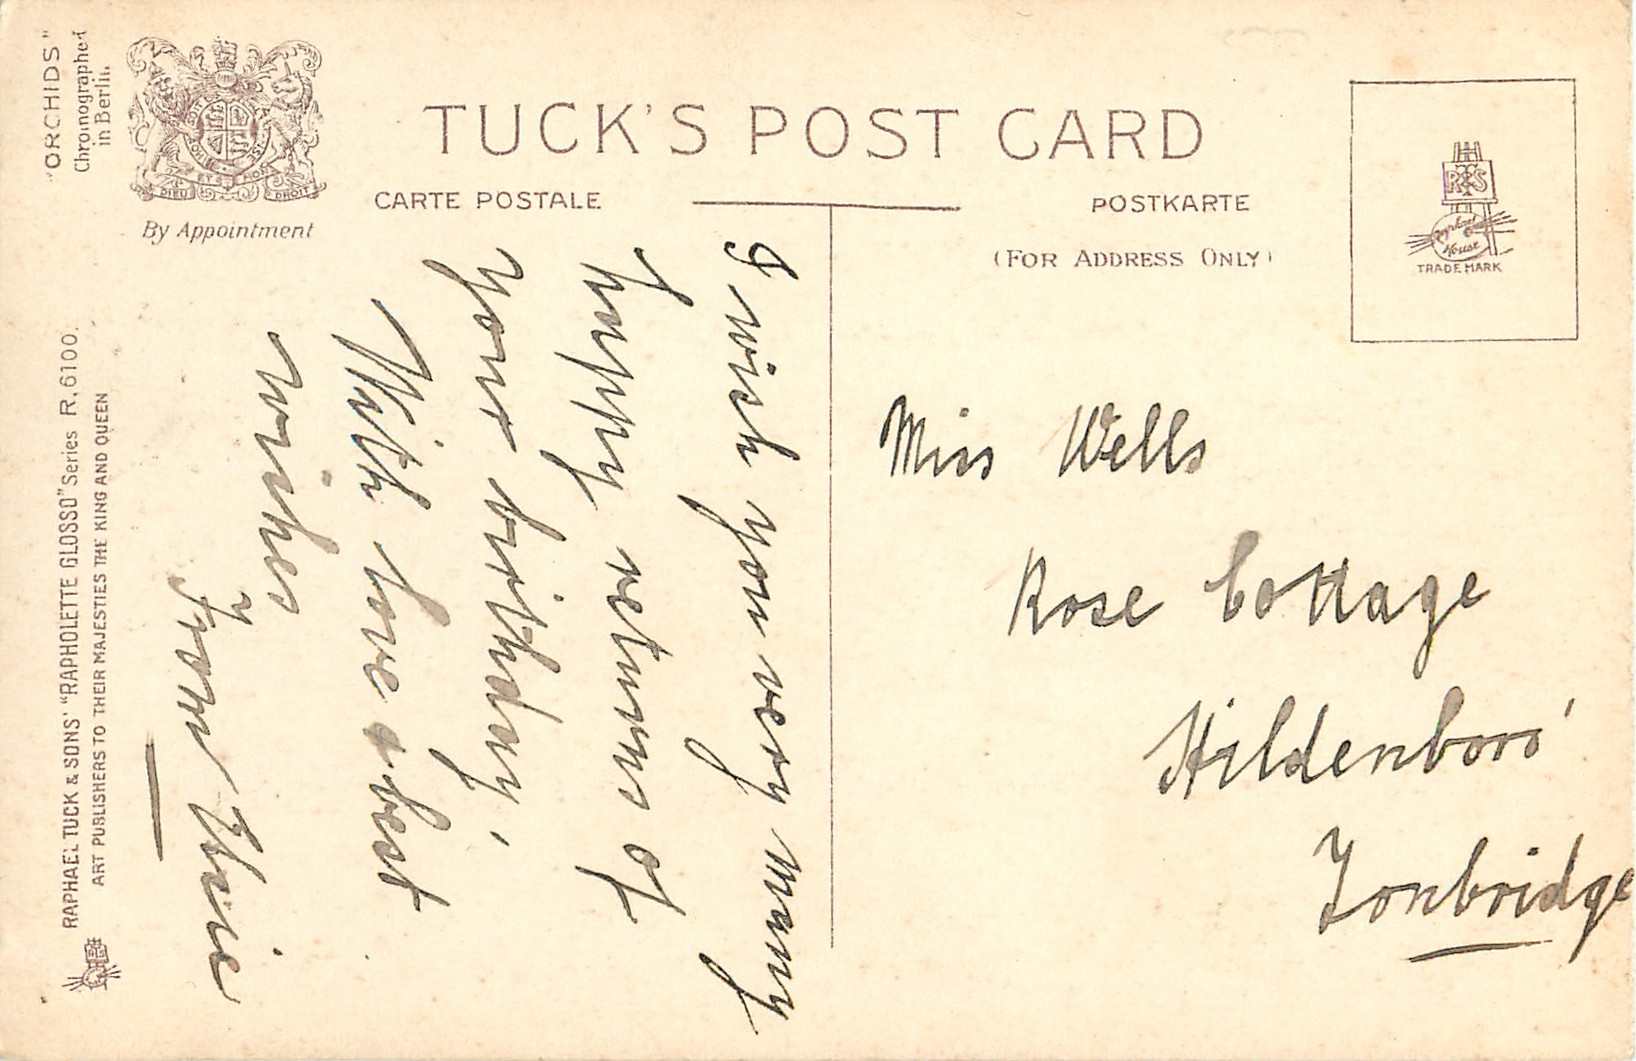 "ORCHIDS"
Chromographed
in Berlin.
DIEU ET MON DROIT
By Appointment
TUCK'S POST CARD
CARTE POSTALE
POSTKARTE
(FOR ADDRESS ONLY)
R S
House
TRADE MARK
RAPHAEL TUCK & SONS' "RAPHOLETTE GLOSSO" Series R. 6100.
ART PUBLISHERS TO THEIR MAJESTIES THE KING AND QUEEN
I wish you very many
happy returns of
your birthday,
With love & best
wishes
From
Miss Wells
Rose Cottage
Hildenboro'
Tonbridge